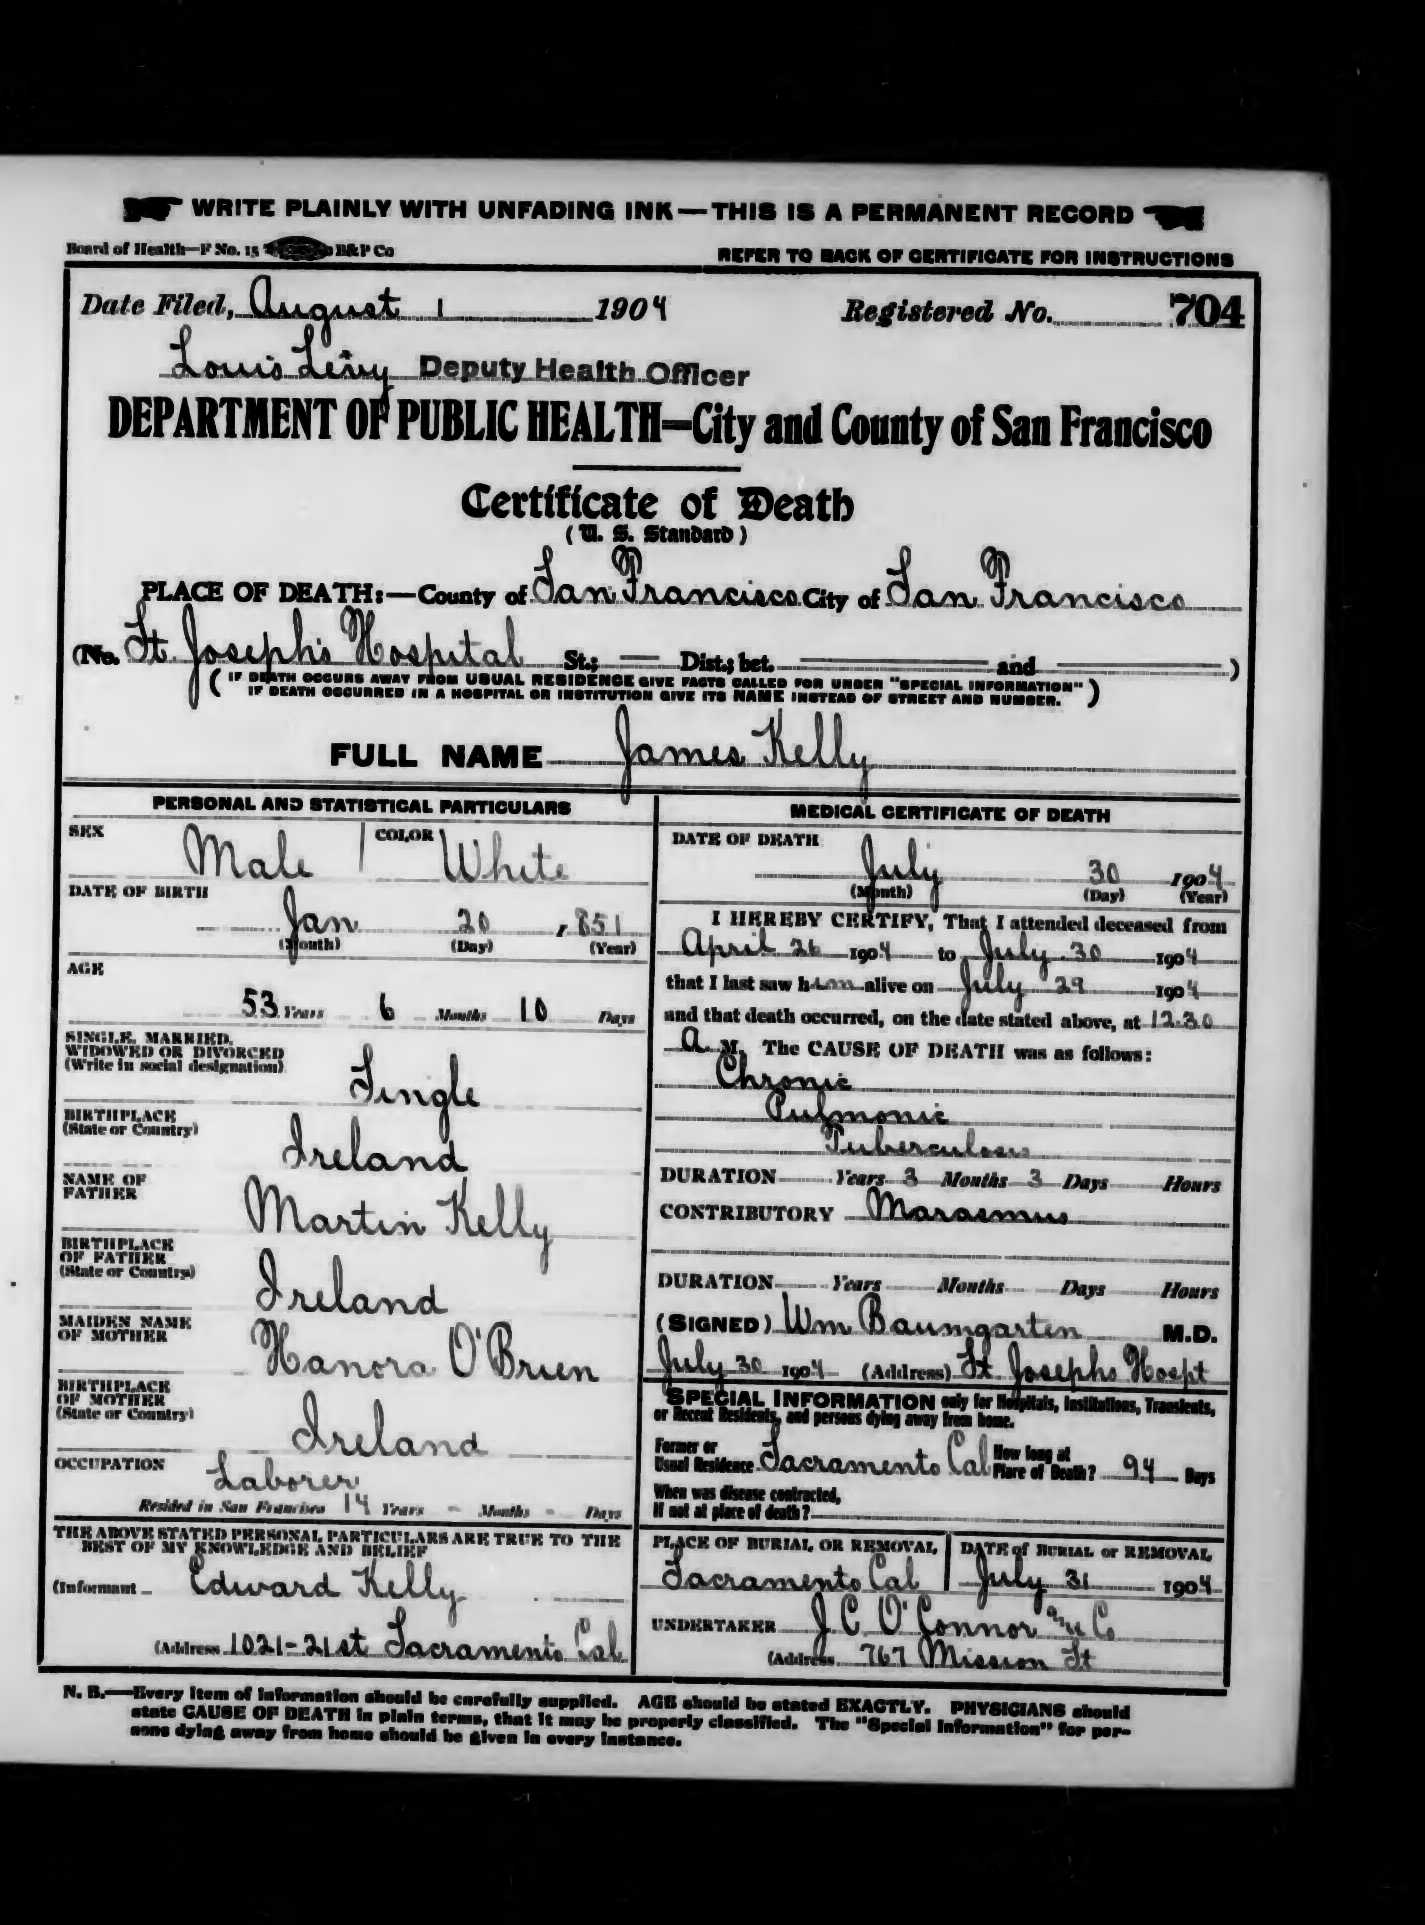 WRITE PLAINLY WITH UNFADING INK—THIS IS A PERMANENT RECORD
Board of Health—F No. 15 B&P Co
REFER TO BACK OF CERTIFICATE FOR INSTRUCTIONS
Date Filed, August 1 1904 Registered No. 704
Louis Levy Deputy Health Officer
DEPARTMENT OF PUBLIC HEALTH—City and County of San Francisco
Certificate of Death
(U. S. Standard)
PLACE OF DEATH:—County of San Francisco City of San Francisco
(No. St Joseph's Hospital St.; — Dist.; bet. and )
( IF DEATH OCCURS AWAY FROM USUAL RESIDENCE GIVE FACTS CALLED FOR UNDER "SPECIAL INFORMATION"
IF DEATH OCCURRED IN A HOSPITAL OR INSTITUTION GIVE ITS NAME INSTEAD OF STREET AND NUMBER. )
FULL NAME James Kelly
PERSONAL AND STATISTICAL PARTICULARS
SEX Male COLOR White
DATE OF BIRTH
Jan 20 , 851
(Month) (Day) (Year)
AGE
53 Years 6 Months 10 Days
SINGLE, MARRIED,
WIDOWED OR DIVORCED
(Write in social designation)
Single
BIRTHPLACE
(State or Country)
Ireland
NAME OF
FATHER
Martin Kelly
BIRTHPLACE
OF FATHER
(State or Country)
Ireland
MAIDEN NAME
OF MOTHER
Hanora O'Brien
BIRTHPLACE
OF MOTHER
(State or Country)
Ireland
OCCUPATION
Laborer
Resided in San Francisco 14 Years - Months - Days
THE ABOVE STATED PERSONAL PARTICULARS ARE TRUE TO THE
BEST OF MY KNOWLEDGE AND BELIEF
(Informant Edward Kelly
(Address 1021-21st Sacramento Cal
MEDICAL CERTIFICATE OF DEATH
DATE OF DEATH
July 30 1904
(Month) (Day) (Year)
I HEREBY CERTIFY, That I attended deceased from
April 26 1904 to July 30 1904
that I last saw him alive on July 29 1904
and that death occurred, on the date stated above, at 12.30
A. M. The CAUSE OF DEATH was as follows:
Chronic
Pulmonic
Tuberculosis
DURATION Years 3 Months 3 Days Hours
CONTRIBUTORY Marasmus
DURATION Years Months Days Hours
(SIGNED) Wm Baumgarten M.D.
July 30 1904 (Address) St Josephs Hospt
SPECIAL INFORMATION only for Hospitals, Institutions, Transients,
or Recent Residents, and persons dying away from home.
Former or
Usual Residence Sacramento Cal
How long at
Place of Death? 94 Days
When was disease contracted,
If not at place of death?
PLACE OF BURIAL OR REMOVAL
Sacramento Cal
DATE of BURIAL or REMOVAL
July 31 1904
UNDERTAKER J C O'Connor & Co
(Address 767 Mission St
N. B.—Every item of information should be carefully supplied. AGE should be stated EXACTLY. PHYSICIANS should
state CAUSE OF DEATH in plain terms, that it may be properly classified. The "Special Information" for per-
sons dying away from home should be given in every instance.